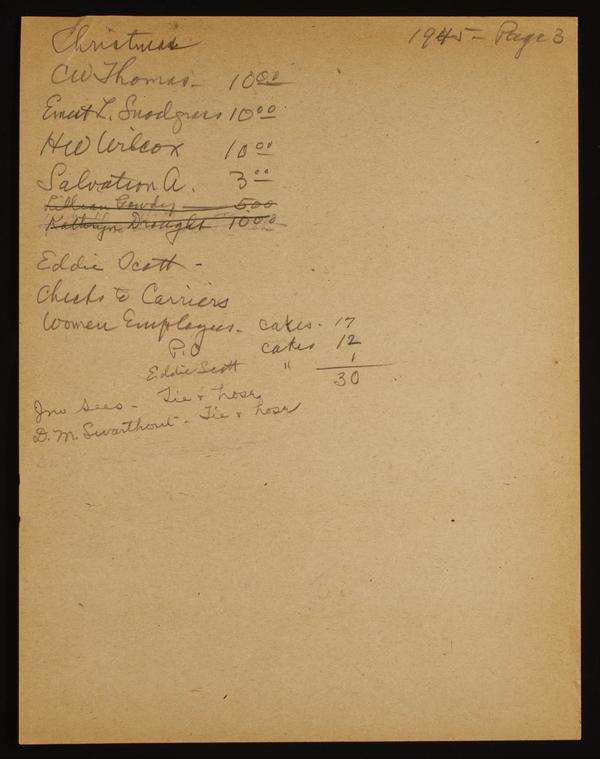 Christmas 1945 - Page 3
CW Thomas - 10.00
Ernest L. Snodgrass 10.00
HW Wilcox 10.00
Salvation A. 3.00
Lillian Gowdy 5.00
Kathryn Drought 10.00
Eddie Scott -
Checks to Carriers
Women Employees - cakes - 17
P.O cakes 12
Eddie Scott " 1
30
Jno Sees - Tie & hose
D. M. Swarthout - Tie & hose